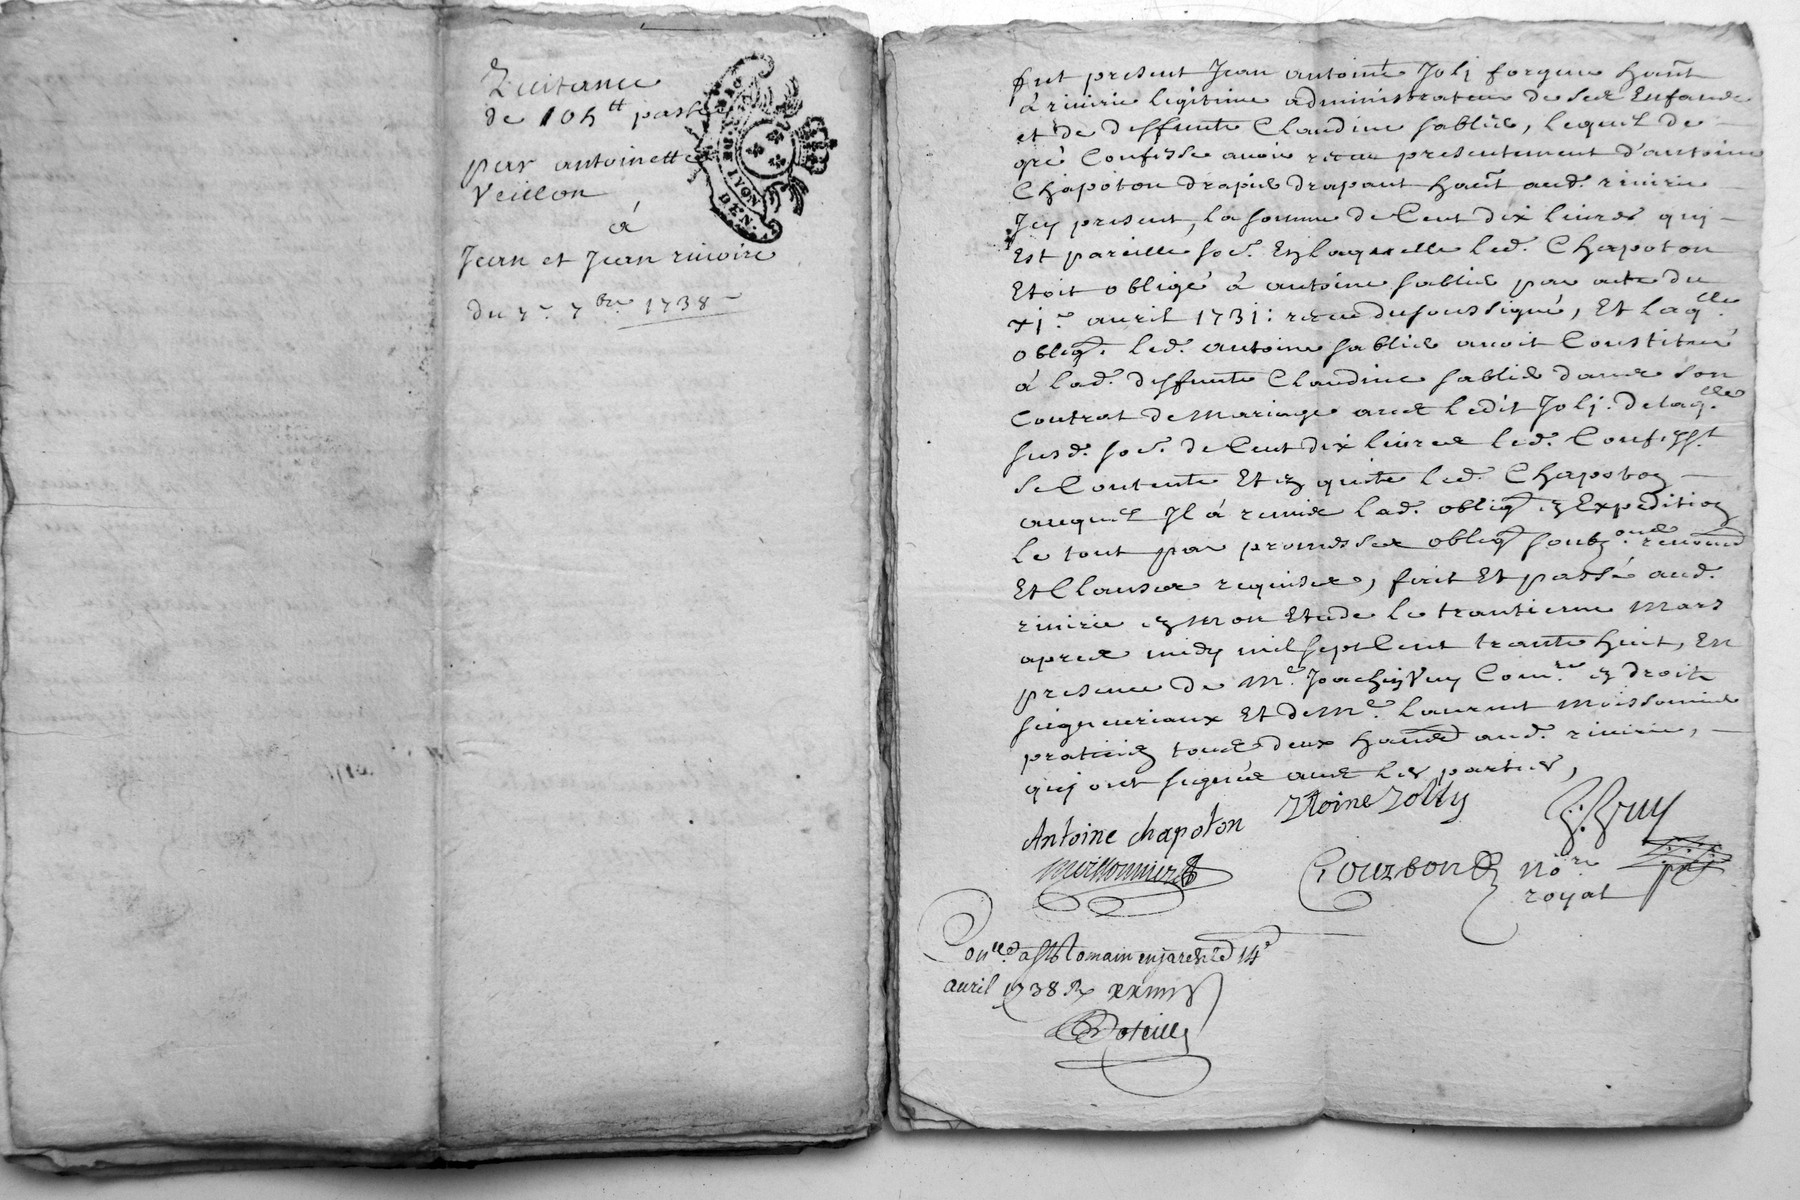 Quitance
de 105 ₶ passée
par antoinette
Veillon
à
Jean et Jean rivoire
du 7bre 1738
LYON
DEN.
fut present Jean antoine Joli forgeur hañt
à rivirie legitime administrateur de ses Enfans
et de deffunte Claudine sablier, lequel de
gré Confesse avoir receu presentement d'antoine
Chapoton drapier drapant hañt aud. rivirie
Jcy present, la somme de Cent dix livres qui
Est pareille so.e. En laquelle led. Chapoton
Etoit obligé à antoine sablier par acte du
xj.e avril 1731: receu du soussigné, Et laq.lle
obliq.on led. antoine sablier avoit Constitué
à lad. deffunte Claudine sablier dans son
Contrat de Mariage avec ledit Joli. de laq.lle
susd. so.e de Cent dix livres led. Confess.t
se Contente Et en quite led. Chapoton
auquel Jl à remis lad. oblig.on en Expedition
le tout par promesses oblig.on renon.on
Et Clauses requises, fait Et passé aud.
rivirie en Mon Etude le trantieme Mars
apres midy mil sept Cent trante huit, En
presence de M.e Joachin Com.re en droits
seigneuriaux Et de M.e Laurent Moissonnier
praticien tous deux hañts aud. rivirie,
qui ont signé avec les parties,
Antoine chapoton Ntoine Jolly
Moissonnier Courbon No.re
royal
Con.lé a St Romain en jarest le 14e
avril 1738 R